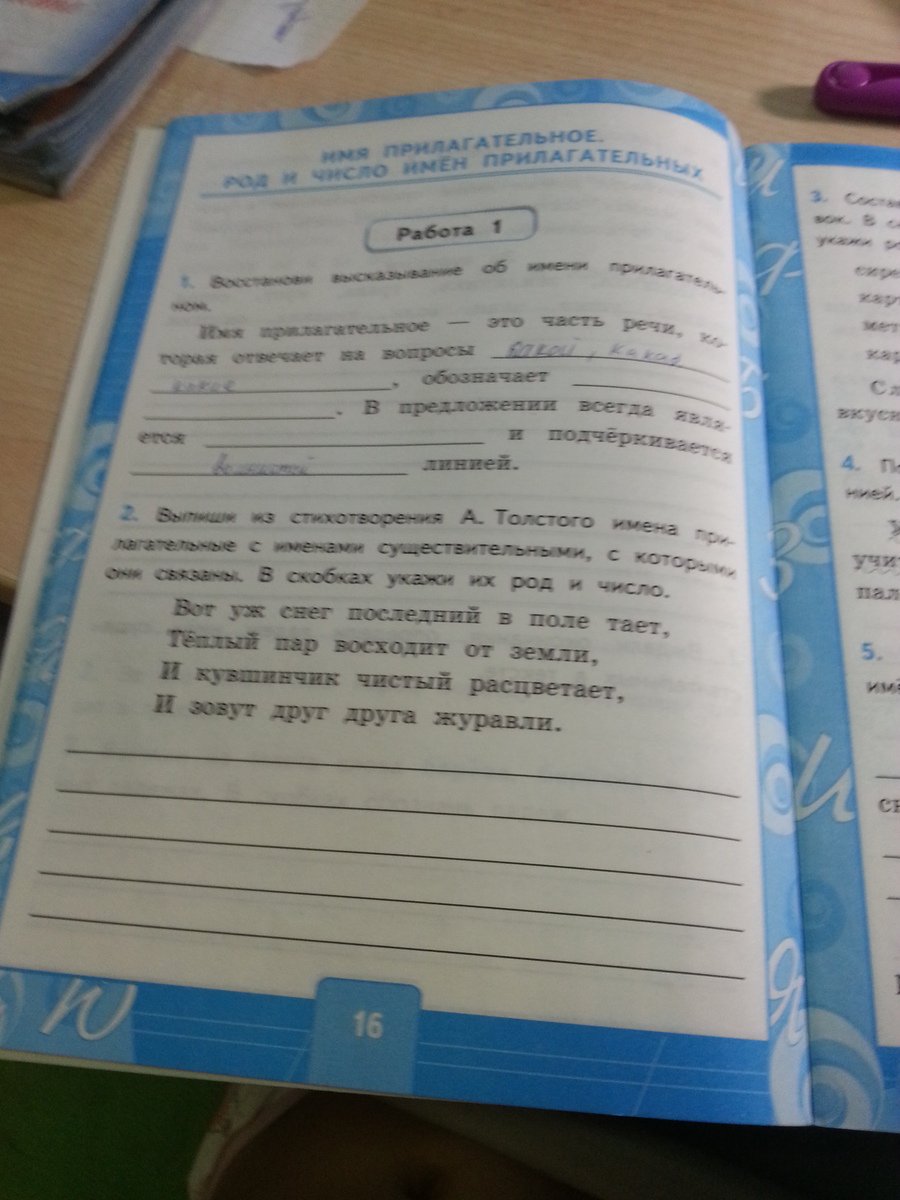 ИМЯ ПРИЛАГАТЕЛЬНОЕ.
РОД И ЧИСЛО ИМЁН ПРИЛАГАТЕЛЬНЫХ
Работа 1
1. Восстанови высказывание об имени прилагатель-
ном.
Имя прилагательное — это часть речи, ко-
торая отвечает на вопросы какой, какая
какое, обозначает
. В предложении всегда явля-
ется и подчёркивается
волнистой линией.
2. Выпиши из стихотворения А. Толстого имена при-
лагательные с именами существительными, с которыми
они связаны. В скобках укажи их род и число.
Вот уж снег последний в поле тает,
Тёплый пар восходит от земли,
И кувшинчик чистый расцветает,
И зовут друг друга журавли.
16
3. Соста
вок. В с
укажи ро
сире
карт
мет
кар
Сл
вкусн
4. По
нией.
учи
пал
5.
имё